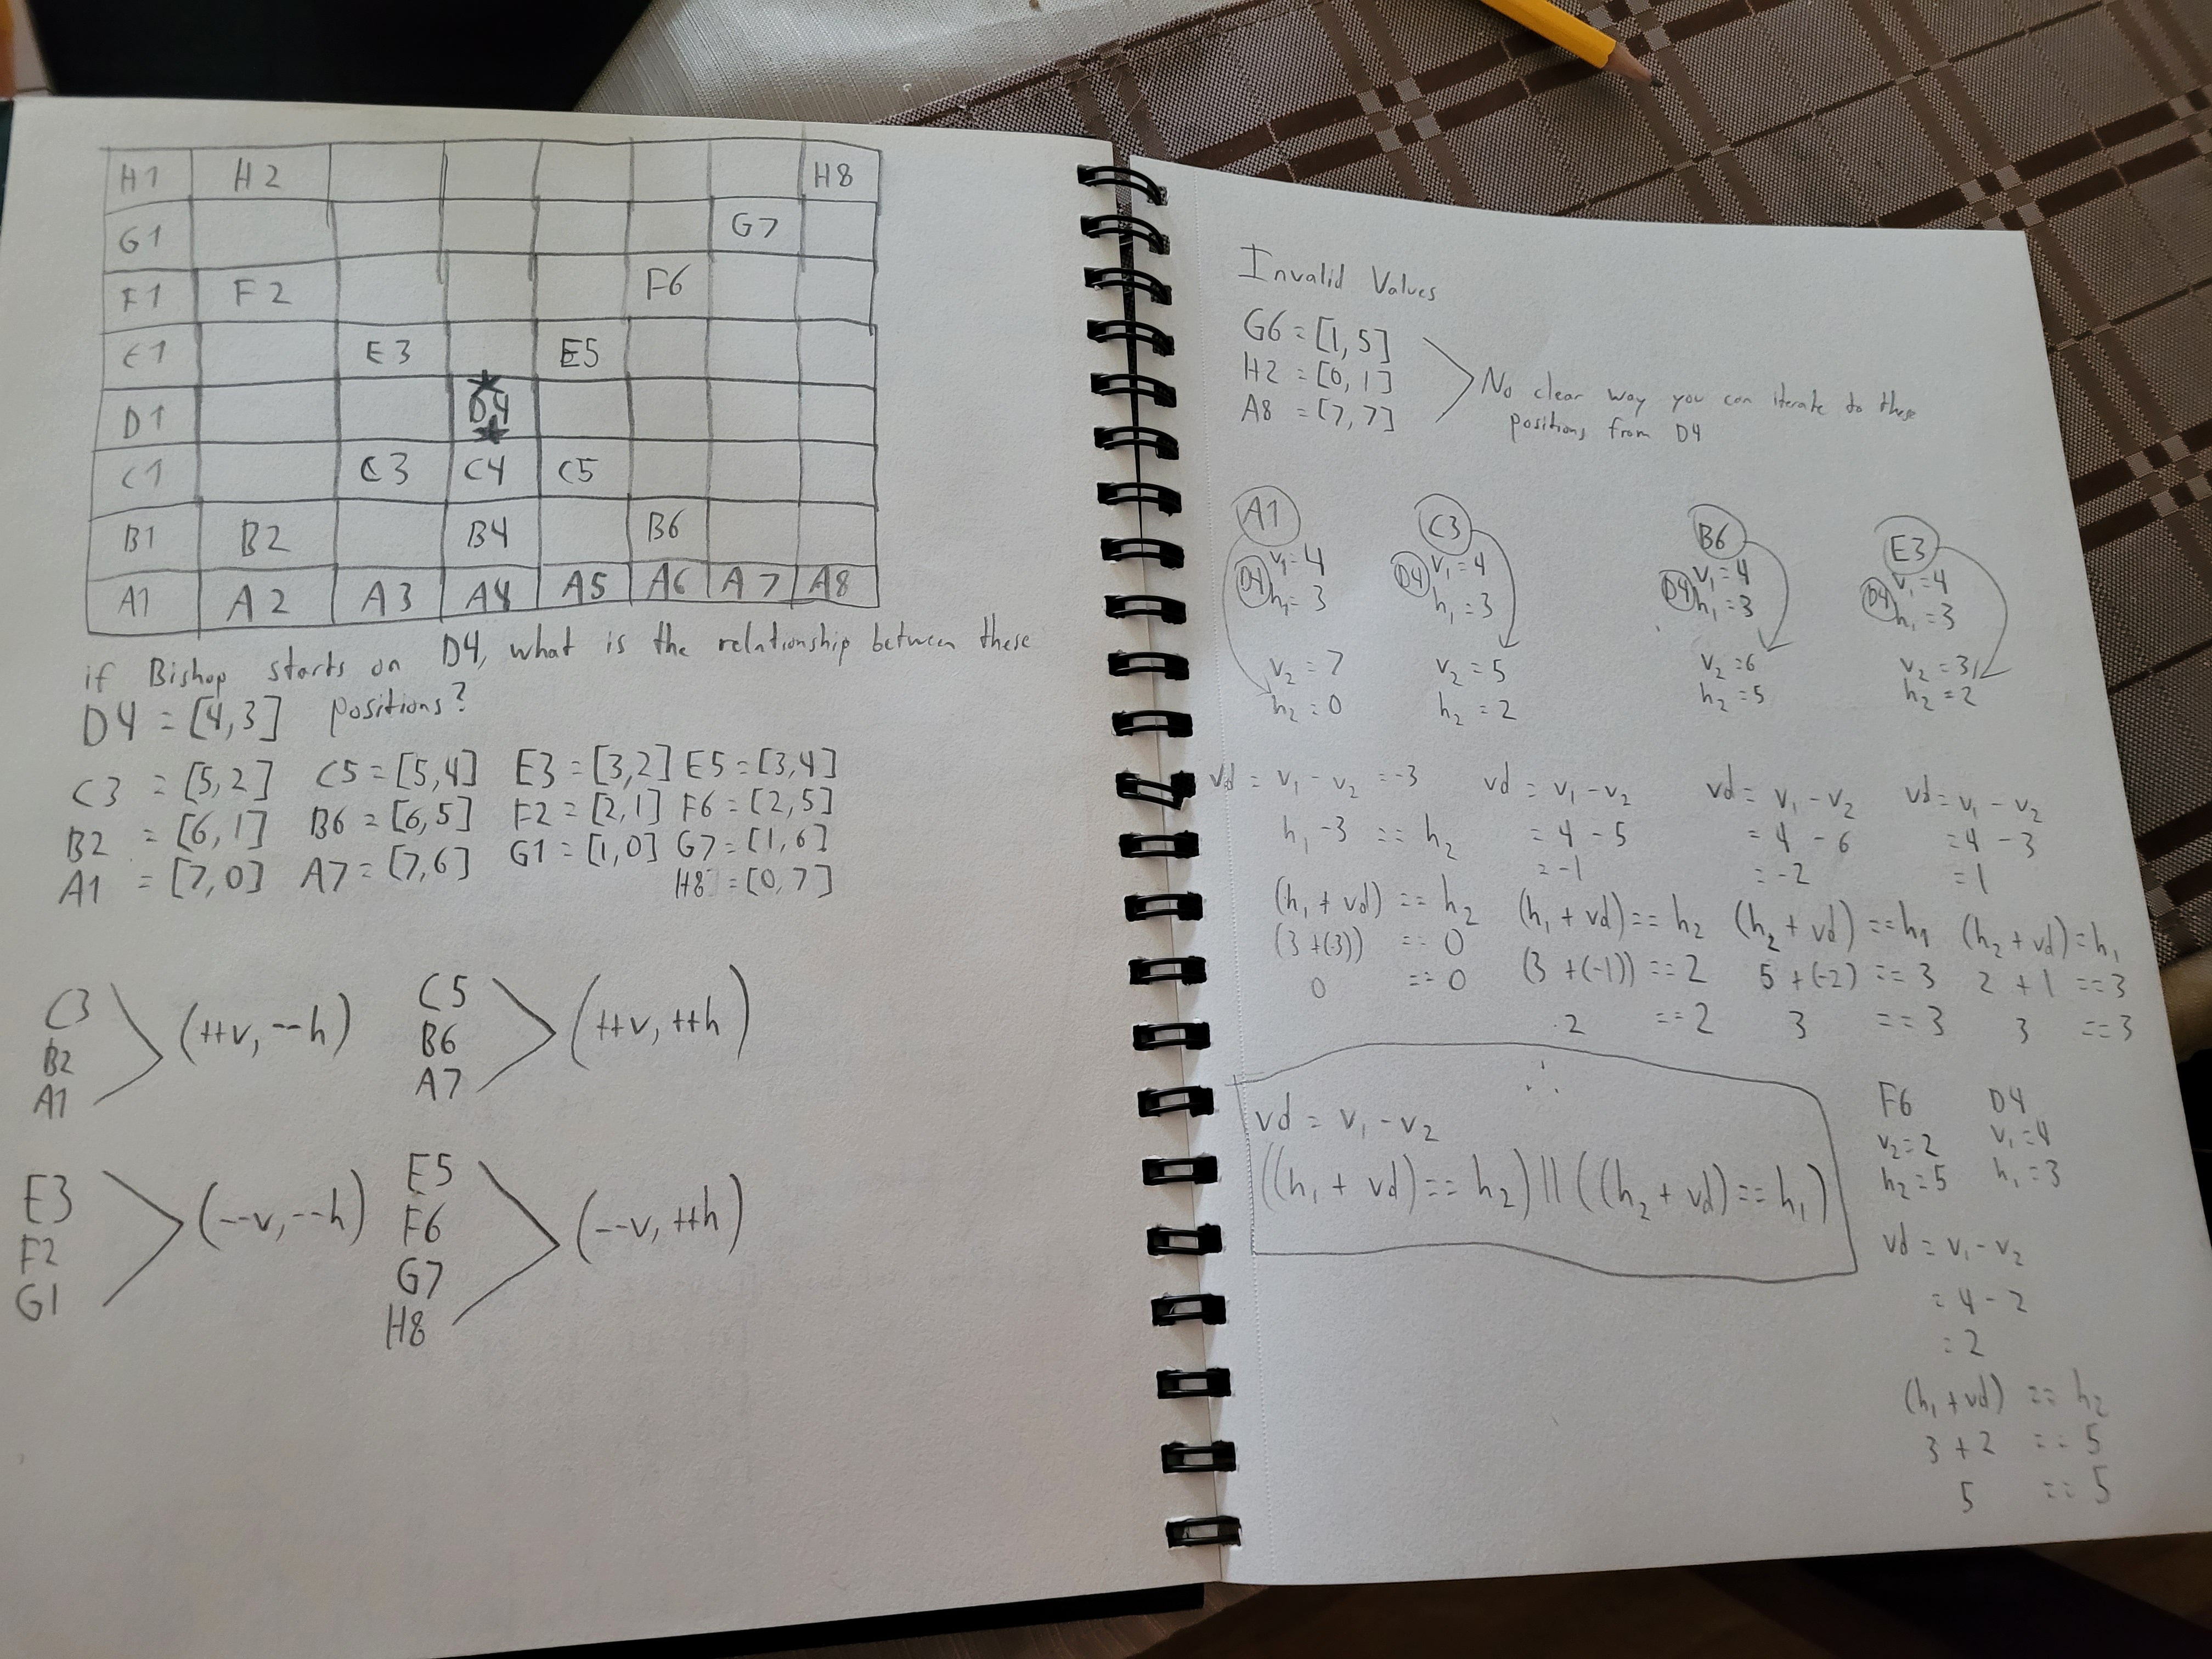 H1 H2 H8
G1 G7
F1 F2 F6
E1 E3 E5
D1 D4
C1 C3 C4 C5
B1 B2 B4 B6
A1 A2 A3 A4 A5 A6 A7 A8
if Bishop starts on D4, what is the relationship between these
D4 = [4,3] positions?
C3 = [5,2] C5 = [5,4] E3 = [3,2] E5 = [3,4]
B2 = [6,1] B6 = [6,5] F2 = [2,1] F6 = [2,5]
A1 = [7,0] A7 = [7,6] G1 = [1,0] G7 = [1,6]
H8 = [0,7]
C3
B2
A1
(++v, --h)
C5
B6
A7
(++v, ++h)
E3
F2
G1
(--v, --h)
E5
F6
G7
H8
(--v, ++h)
Invalid Values
G6 = [1,5]
H2 = [0,1]
A8 = [7,7]
No clear way you can iterate to these
positions from D4
A1
D4 v₁=4
h₁=3
v₂=7
h₂=0
vd = v₁ - v₂ = -3
h₁ -3 == h₂
(h₁ + vd) == h₂
(3 + (-3)) == 0
0 == 0
C3
D4 v₁=4
h₁=3
v₂=5
h₂=2
vd = v₁ - v₂
= 4 - 5
= -1
(h₁ + vd) == h₂
(3 + (-1)) == 2
2 == 2
B6
D4 v₁=4
h₁=3
v₂=6
h₂=5
vd = v₁ - v₂
= 4 - 6
= -2
(h₂ + vd) == h₁
5 + (-2) == 3
3 == 3
E3
D4 v₁=4
h₁=3
v₂=3
h₂=2
vd = v₁ - v₂
= 4 - 3
= 1
(h₂ + vd) = h₁
2 + 1 == 3
3 == 3
∴
vd = v₁ - v₂
((h₁ + vd) == h₂) || ((h₂ + vd) == h₁)
F6 D4
v₂=2 v₁=4
h₂=5 h₁=3
vd = v₁ - v₂
= 4 - 2
= 2
(h₁ + vd) == h₂
3 + 2 == 5
5 == 5